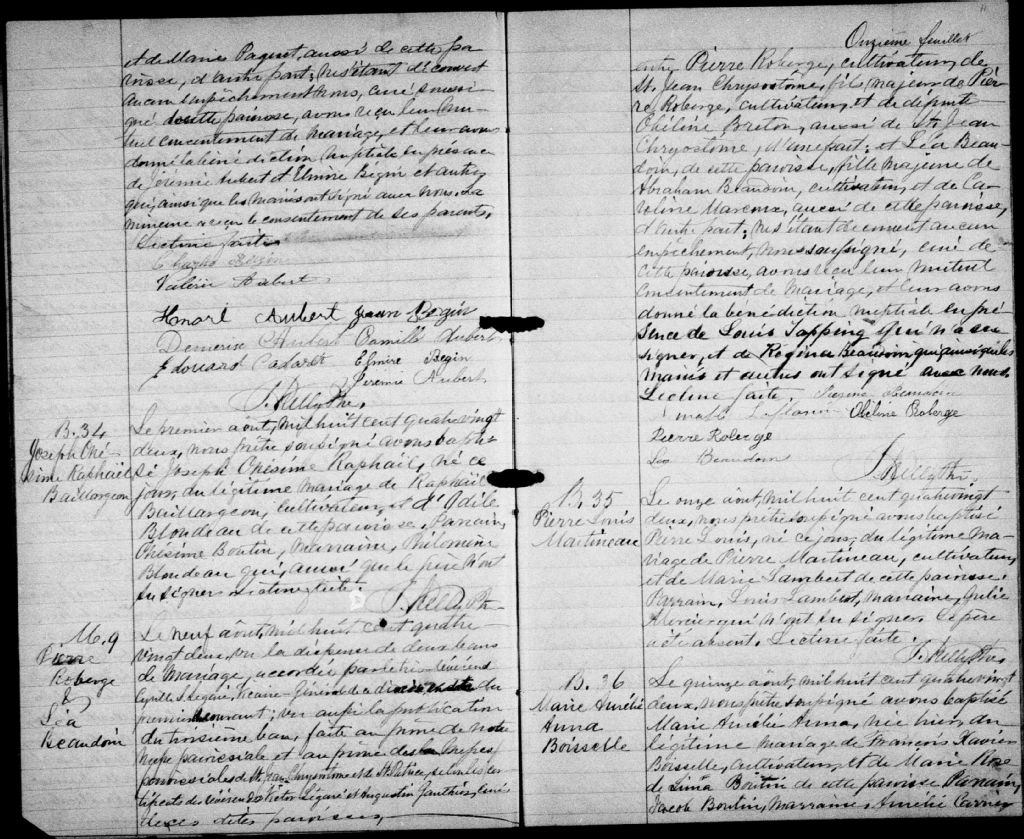 et de Marie Paquet, aussi de cette pa
roisse, d'autre part; ne s'étant découvert
aucun empêchement, nous, curé soussi
gné de cette paroisse, avons reçu leur mu
tuel consentement de mariage, et leur avons
donné la bénédiction nuptiale en présence
de Jérémie Aubert et Elmire Bégin et autres
qui, ainsi que les mariés ont signé avec nous. La
mineure a reçu le consentement de ses parents.
Lecture faite
Charles Bégin
Valérie Aubert
Honoré Aubert Jean Bégin
Demerise Aubert Camille Aubert
Edouard Elmire Begin
Jeremie Aubert
J. Kelly Ptre.
B. 34
Joseph Oné-
sime Raphaël
Baillargeon
Le premier août, mil huit cent quatre vingt
deux, nous prêtre soussigné avons bapti-
sé Joseph Onesime Raphaël, né ce
jour, du légitime mariage de Raphaël
Baillargeon, cultivateur, et d'Odile
Blondeau de cette paroisse. Parrain,
Onésime Boutin, marraine, Philomène
Blondeau qui, ainsi que le père n'ont
su signer. Lecture faite.
J. Kelly Ptre
M. 9
Pierre
Roberge
&
Léa
Beaudoin
Le neuf août, mil huit cent quatre
vingt deux, vu la dispense de deux bans
de mariage, accordée par le très révérend
Cyrille E. Légaré, Vicaire-Général de du
premier courant; vu aussi la publication
du troisième ban, faite au prône de notre
messe paroissiale et au prône des messes
paroissiales de St. Jean Chrysostôme et de St. Patrice, selon les cer
tificats des révérends Victor Légaré et Augustin Gauthier, curés
de ces dites paroisses,
Onzième feuillet
entre Pierre Roberge, cultivateur, de
St. Jean Chrysostôme, fils majeur de Pier
re Roberge, cultivateur, et de défunte
Obéline Breton, aussi de St. Jean
Chrysostome, d'une part; et Léa Beau-
doin, de cette paroisse, fille majeure de
Abraham Beaudoin, cultivateur, et de Ca-
roline Marcoux, aussi de cette paroisse,
d'autre part; ne s'étant découvert aucun
empêchement, nous soussigné, curé de
cette paroisse, avons reçu leur mutuel
consentement de mariage, et leur avons
donné la bénédiction nuptiale en pré
sence de Louis Topping qui n'a su
signer, et de Régina Beaudoin qui ainsi que les
mariés et autres ont signé avec nous.
Lecture faite. Beaudoin
Obéline Roberge
Pierre Roberge
Léa Beaudoin
J. Kelly Ptre.
B. 35
Pierre Louis
Martineau
Le onze août, mil huit cent quatre vingt
deux, nous prêtre soussigné avons baptisé
Pierre Louis, né ce jour, du légitime ma-
riage de Pierre Martineau, cultivateur,
et de Marie Lambert de cette paroisse.
Parrain, Louis Lambert, marraine, Julie
Mercier qui n'ont su signer. Le père
a été absent. Lecture faite.
J. Kelly Ptre
B. 36
Marie Aurélie
Anna
Boisselle
Le quinze août, mil huit cent quatre vingt
deux, nous prêtre soussigné avons baptisé
Marie Aurélie Anna, née hier, du
légitime mariage de François Xavier
Boisselle, cultivateur, et de Marie Rose
de Lima Boutin de cette paroisse. Parrain,
Jacob Boutin, Marraine, Amélie Carrier